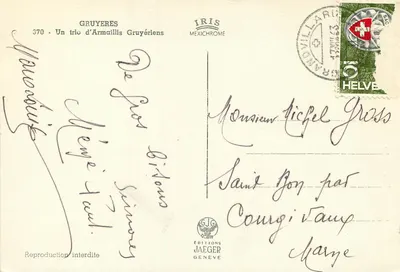 GRUYERES
370 - Un trio d'Armaillis Gruyériens
IRIS
MEXICHROME
GRANDVILLARD
HELVE
De Gros bisous
Mémé
Monsieur Michel Gross
Saint Bon par
Courgivaux
Marne
Reproduction interdite
EDITIONS
JAEGER
GENÈVE